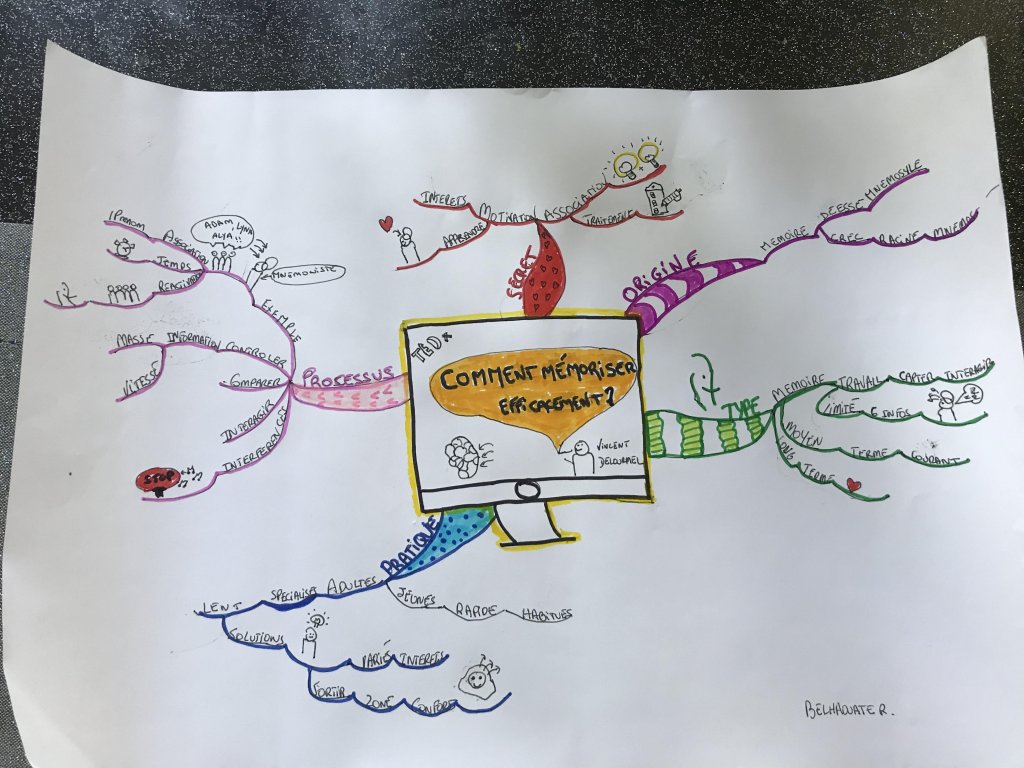 TEDx
COMMENT MÉMORISER
EFFICACEMENT?
VINCENT
DELOURMEL
SECRET
MOTIVATION
INTERETS
APPRENDRE
ASSOCIATION
TRAITEMENT
ORIGINE
MEMOIRE
DÉESSE MNEMOSYLE
GREC RACINE MNEME
TYPE
MEMOIRE TRAVAIL CAPTER INTERAGIR
LIMITÉ 6 INFOS
MOYEN TERME COURANT
LONG TERME
PRATIQUE
ADULTES SPECIALISÉS LENT
SOLUTIONS
VARIÉS INTERETS
SORTIR ZONE CONFORT
JEUNES RAPIDE HABITUÉS
PROSESSUS
EXEMPLE
MNEMONISTE
ADAM LYNA
ALYA !!
ASSOCIATION
1 PRENOM
TEMPS
REACTION
MASSE INFORMATION CONTROLER
VITESSE
COMPARER
INTERAGIR
INTERFERENCES
STOP
BELHAOUATE R.